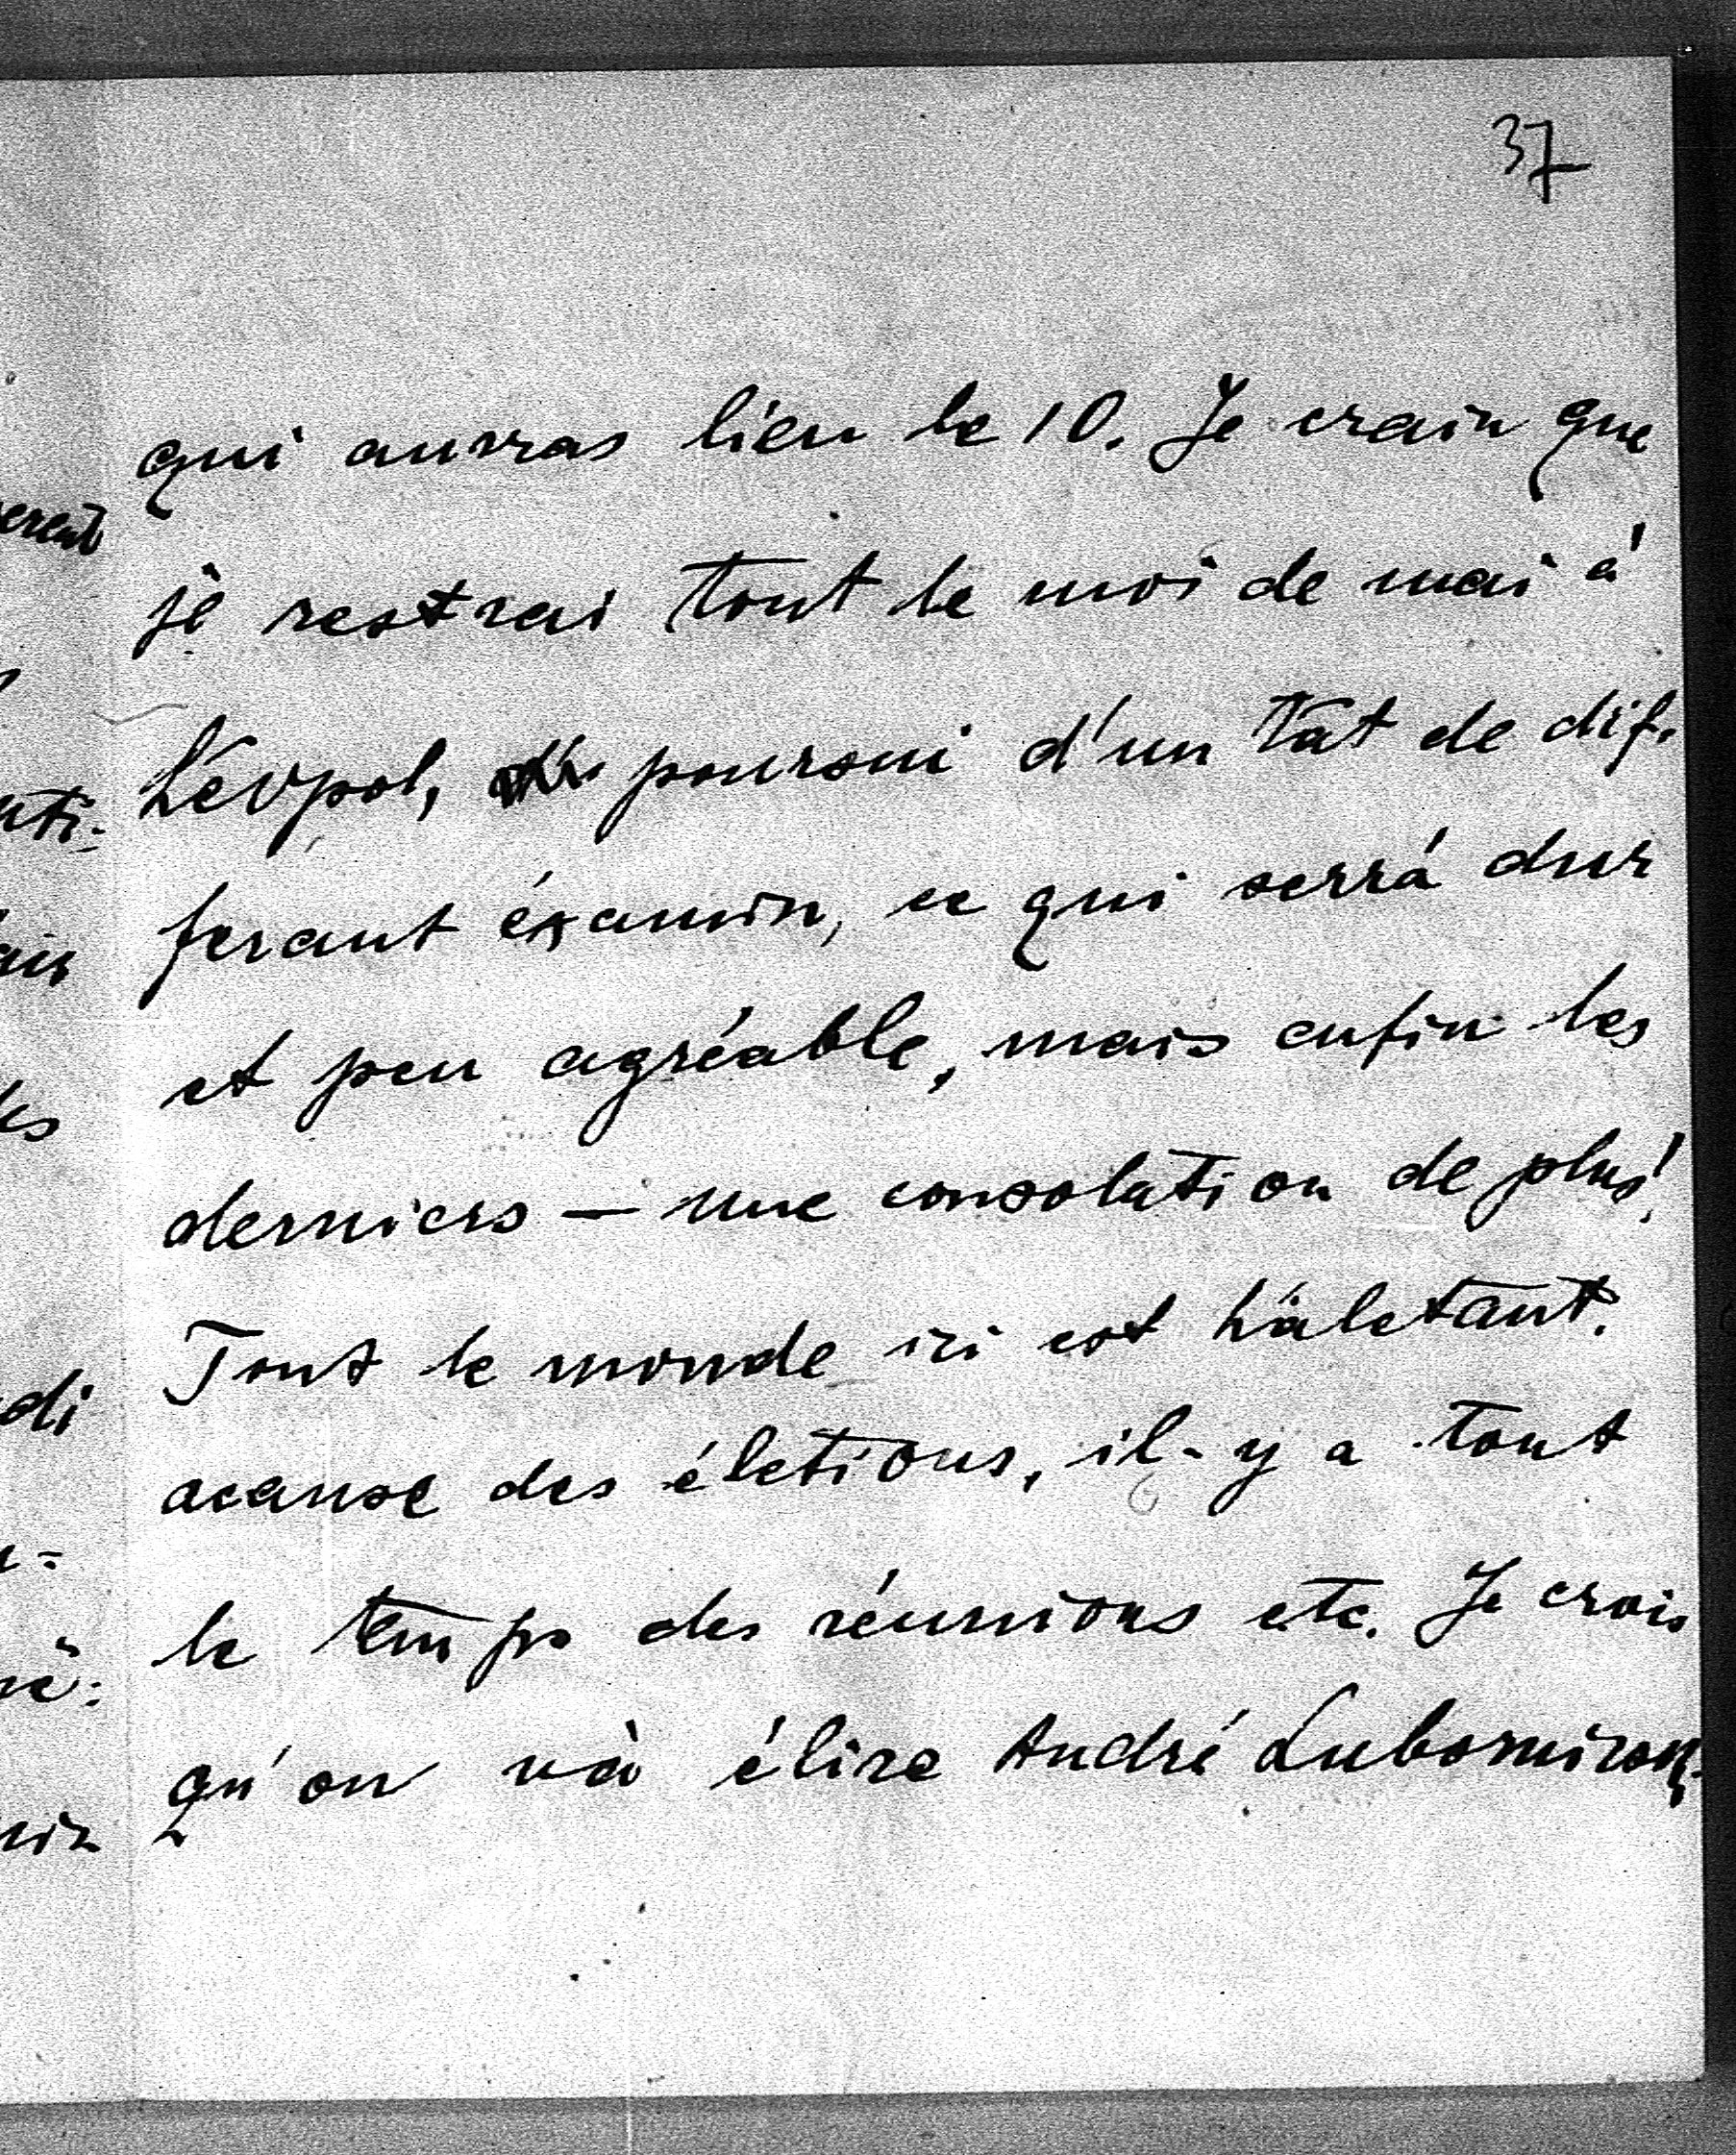 37
qui auras lieu le 10. Je crain que
je restrai tout le moi de mai à
Léopol, poursui d'un tât de dif-
ferant éxamin, ce qui serrá dur
et peu agréable, mais enfin les
derniers — une consolation de plus!
Tout le monde ici est háletant.
acause des életions, il-y a tout
le temps des réunions etc. Je crois
qu'on và élire André Lubomirsky.